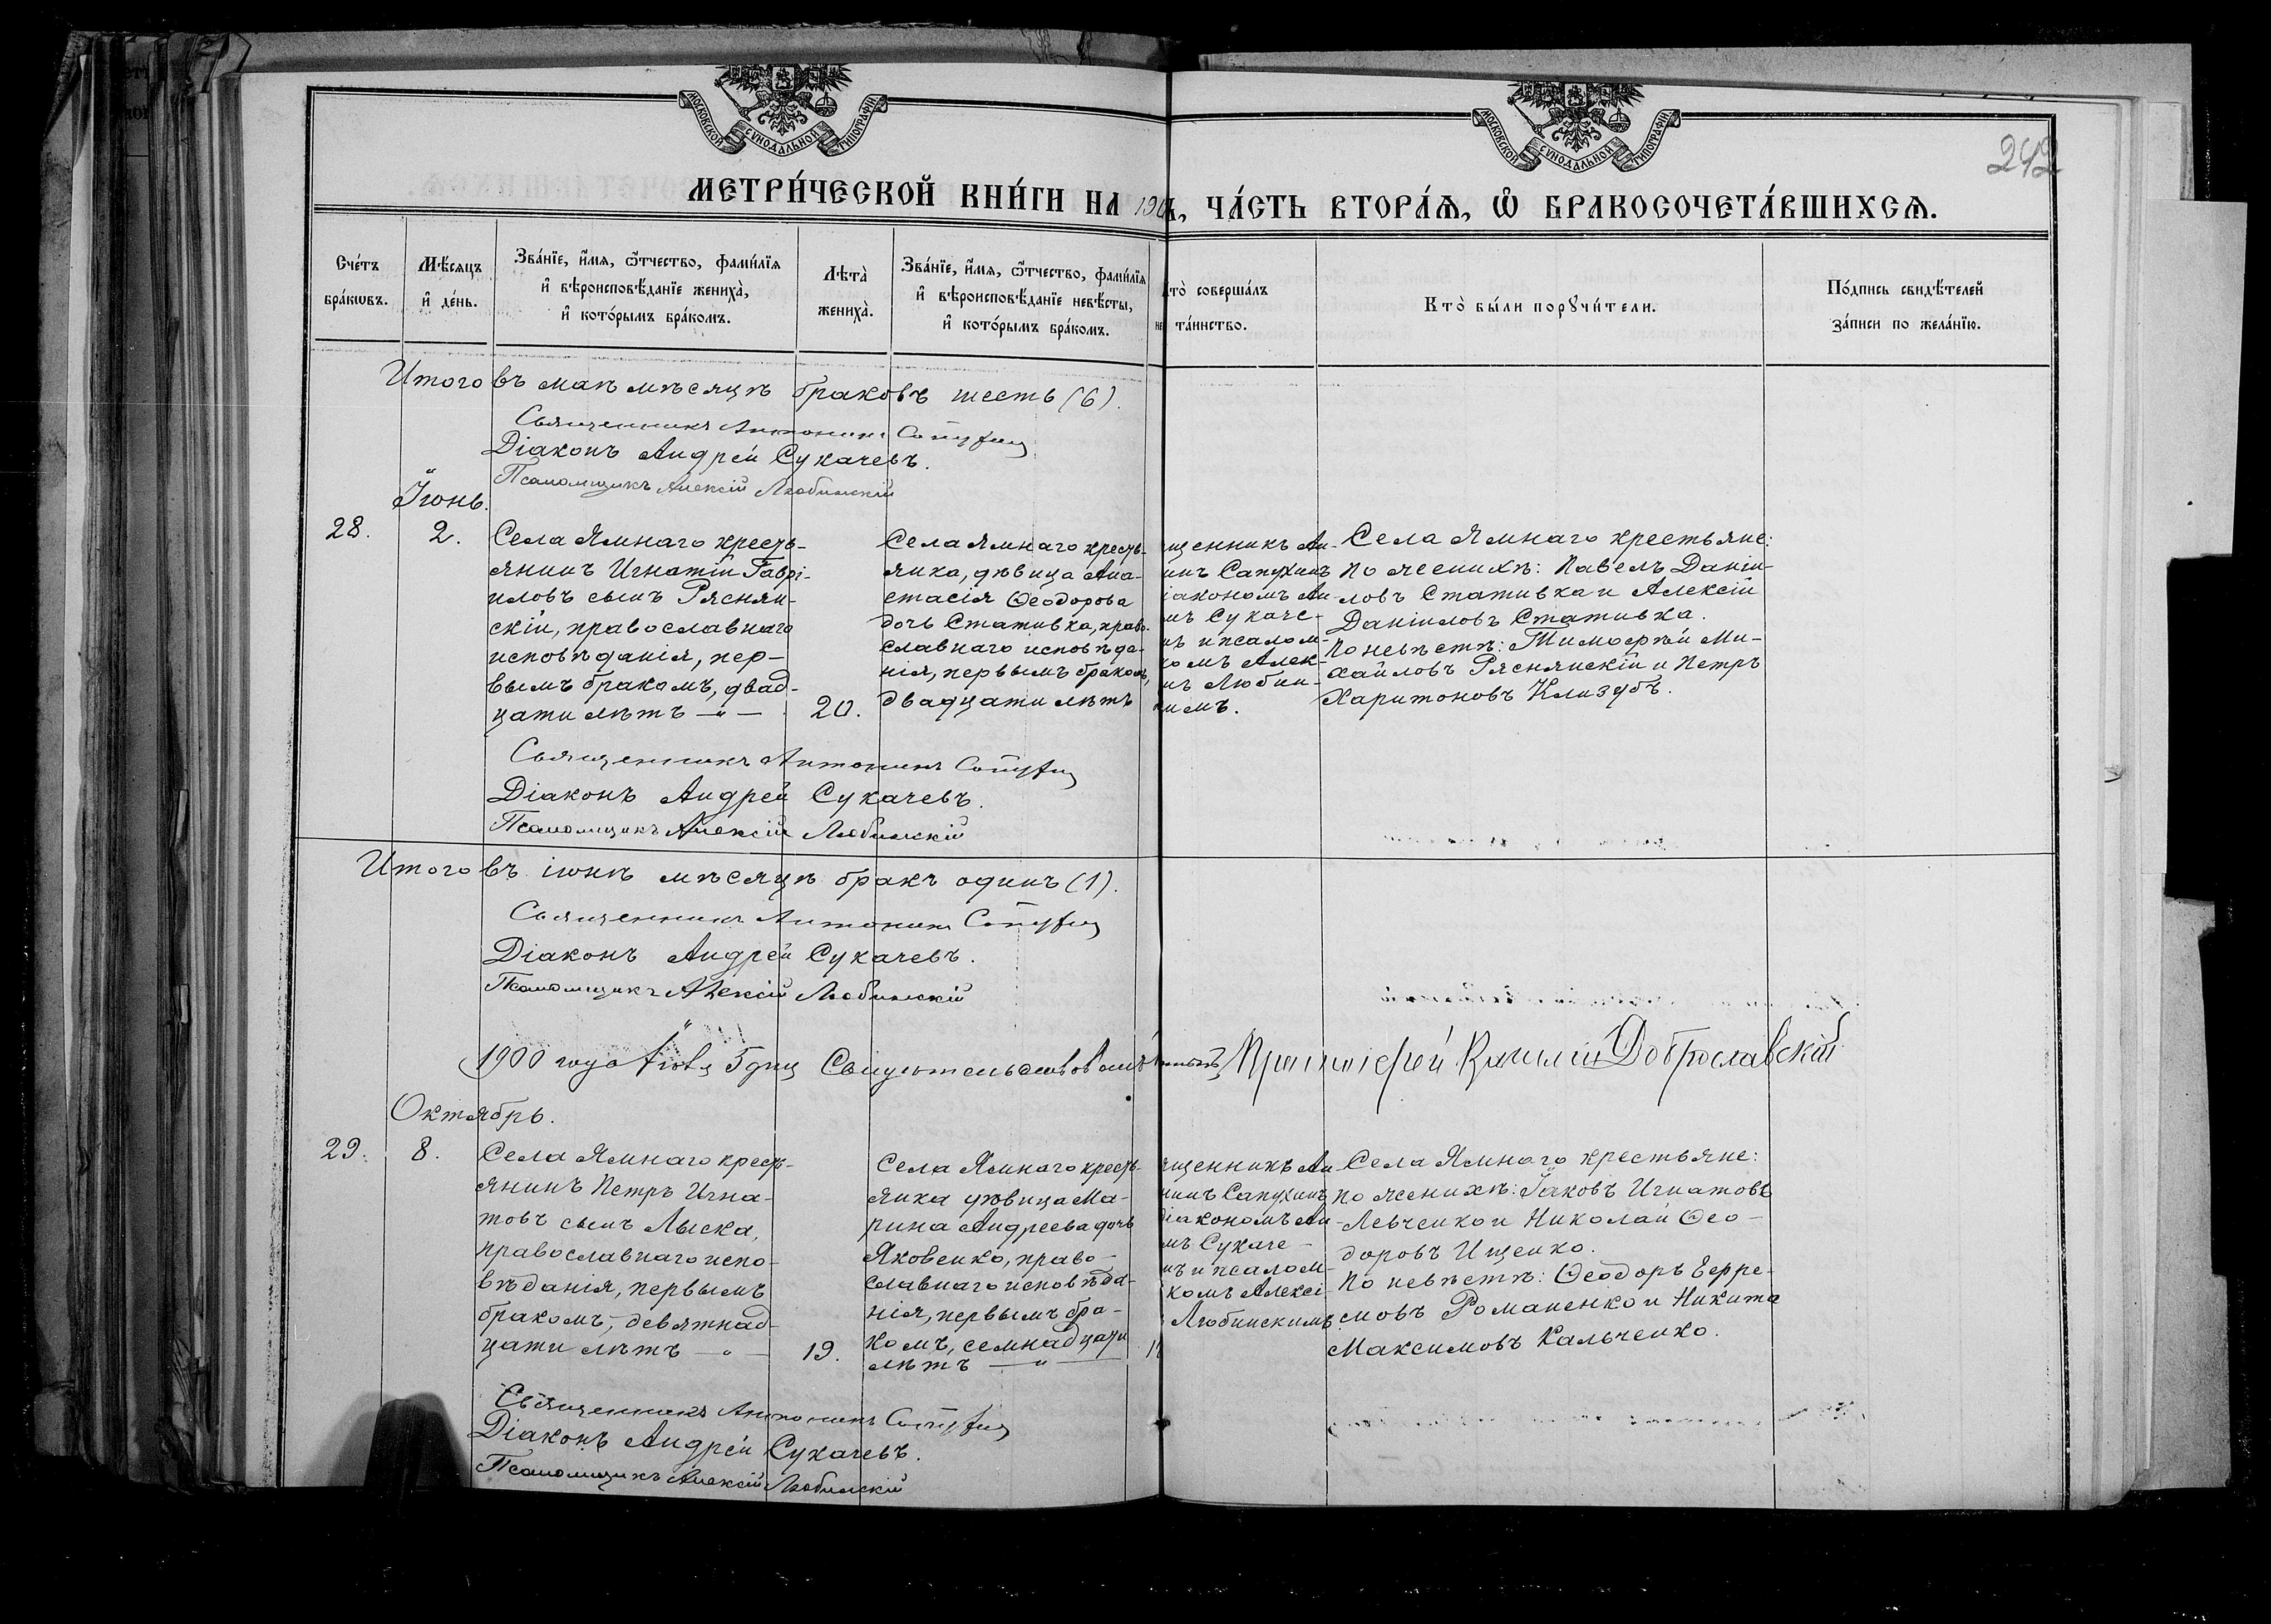 МОСКОВСКОЙ СУНОДАЛЬНОЙ ТИПОГРАФІИ
МОСКОВСКОЙ СУНОДАЛЬНОЙ ТИПОГРАФІИ
242
МЕТРИ́ЧЕСКОЙ КНИ́ГИ НА 190
, ЧА́СТЬ ВТОРА́Ѧ, Ѽ БРАКОСОЧЕТА́ВШИХСѦ.
Сче́тъ
бра́кѡвъ.
Мѣ́сяцъ
и҆ де́нь.
Зва́нїе, и҆́мя, ѻ҆́тчество, фами́лїя
и҆ вѣроисповѣ́данїе жениха̀,
и҆ кото́рымъ бра́комъ.
Лѣта̀
жениха̀.
Зва́нїе, и҆́мя, ѻ҆́тчество, фами́лїя
и҆ вѣроисповѣ́данїе невѣ́сты,
и҆ кото́рымъ бра́комъ.
то̀ соверша́лъ
та́инство.
Кто̀ бы́ли порꙋчи́тели.
По́дпись свидѣ́телей
за́писи по жела́нїю.
Итого въ маѣ мѣсяцѣ браковъ шесть (6).
Священникъ Антонинъ Сапухинъ
Діаконъ Андрей Сукачевъ.
Псаломщикъ Алексій Любинскій
Іюнь.
28.
2.
Села Ямнаго кресть-
янинъ Игнатій Гаврі-
иловъ сынъ Ряснян-
скій, православнаго
исповѣданія, пер-
вымъ бракомъ, двад-
цати лѣтъ — " —
20.
Села Ямнаго кресть-
янка, дѣвица Ана-
стасія Ѳеодорова
дочь Стативка, право-
славнаго исповѣда-
нія, первымъ бракомъ,
двадцати лѣтъ
щенникъ Ан-
инъ Сапухинъ
іакономъ Ан-
мъ Сукаче-
ъ и псалом-
комъ Алек-
мъ Любин-
кимъ.
Села Ямнаго крестьяне:
По женихѣ: Павелъ Даніи-
ловъ Стативка и Алексій
Даніиловъ Стативка.
По невѣстѣ: Тимоѳей Ми-
хайловъ Ряснянскій и Петръ
Харитоновъ Клизубъ.
Священникъ Антонинъ Сапухинъ
Діаконъ Андрей Сукачевъ.
Псаломщикъ Алексій Любинскій
Итого въ іюнѣ мѣсяцѣ бракъ одинъ (1).
Священникъ Антонинъ Сапухинъ
Діаконъ Андрей Сукачевъ.
Псаломщикъ Алексій Любинскій
1900 года Іюля 5 дня Свидѣтельствовалъ Протоіерей Василій Доброславскій
Октябрь.
29.
8.
Села Ямнаго кресть-
янинъ Петръ Игна-
товъ сынъ Лыска,
православнаго испо-
вѣданія, первымъ
бракомъ, девятнад-
цати лѣтъ — " —
19.
Села Ямнаго кресть-
янка дѣвица Ма-
рина Андреева дочь
Яковенко, право-
славнаго исповѣда-
нія, первымъ бра-
комъ, семнадцати
лѣтъ — " —
щенникъ Ан-
нинъ Сапухинъ
іакономъ Ан-
мъ Сукаче-
ъ и псалом-
комъ Алексі-
Любинскимъ
Села Ямнаго крестьяне:
По женихѣ: Іаковъ Игнатовъ
Левченко и Николай Ѳео-
доровъ Ищенко.
По невѣстѣ: Ѳеодоръ Ефре-
мовъ Романенко и Никита
Максимовъ Кальченко.
Священникъ Антонинъ Сапухинъ
Діаконъ Андрей Сукачевъ.
Псаломщикъ Алексій Любинскій